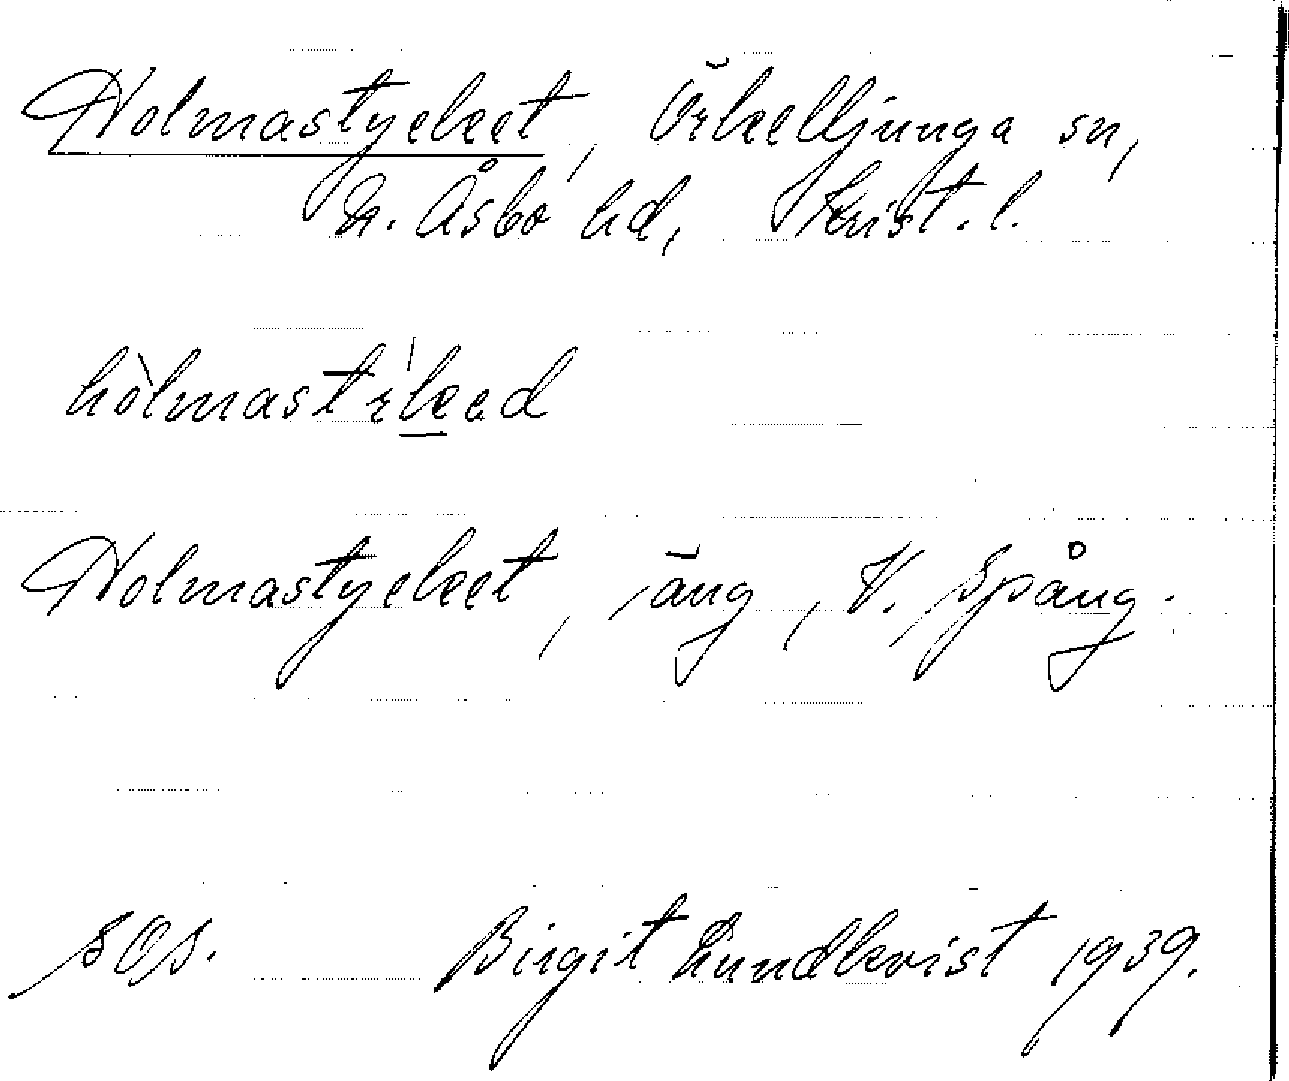 Holmastycket, Örkelljunga sn,
N. Åsbo hd, Krist. l.
hòlmastýkəd
Holmastycket, äng, V. Spång.
SOS. Birgit Lundkvist 1939.